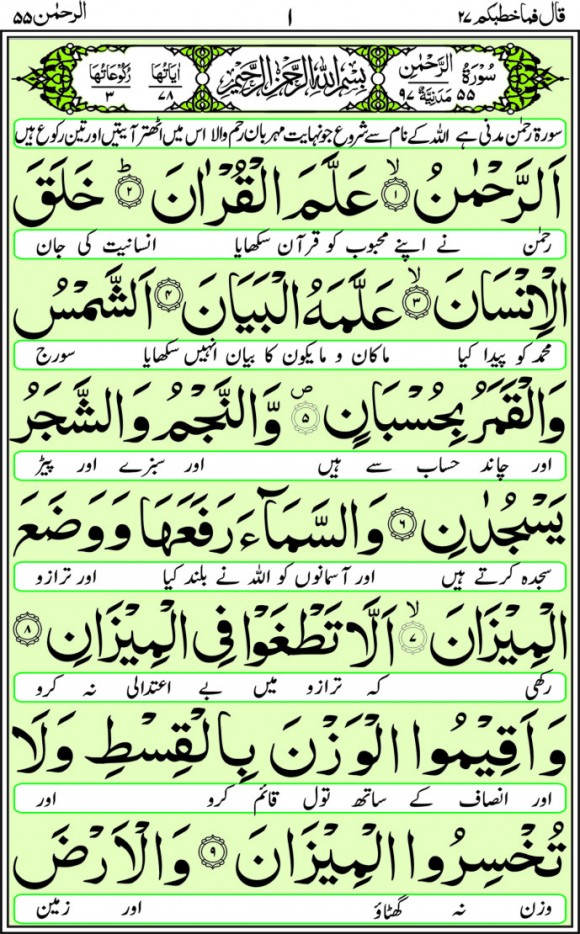 قال فما خطبکم ۲۷ ۱ الرحمٰن ۵۵
سُوْرَةُ الرَّحْمٰنِ ۵۵ مَدَنِيَّةٌ ۹۷ بِسْمِ اللّٰهِ الرَّحْمٰنِ الرَّحِيْمِ اٰيَاتُهَا ۷۸ رُكُوْعَاتُهَا ۳
سورۃ رحمٰن مدنی ہے اللہ کے نام سے شروع جو نہایت مہربان رحم والا اس میں اٹھتر آیتیں اور تین رکوع ہیں
اَلرَّحْمٰنُ ۙ﴿۱﴾ عَلَّمَ الْقُرْاٰنَ ؕ﴿۲﴾ خَلَقَ
رحمٰن نے اپنے محبوب کو قرآن سکھایا انسانیت کی جان
الْاِنْسَانَ ۙ﴿۳﴾ عَلَّمَهُ الْبَيَانَ ﴿۴﴾ اَلشَّمْسُ
محمد کو پیدا کیا ماکان و مایکون کا بیان انہیں سکھایا سورج
وَالْقَمَرُ بِحُسْبَانٍ ۪﴿۵﴾ وَّالنَّجْمُ وَالشَّجَرُ
اور چاند حساب سے ہیں اور سبزے اور پیڑ
يَسْجُدٰنِ ﴿۶﴾ وَالسَّمَآءَ رَفَعَهَا وَوَضَعَ
سجدہ کرتے ہیں اور آسمانوں کو اللہ نے بلند کیا اور ترازو
الْمِيْزَانَ ۙ﴿۷﴾ اَلَّا تَطْغَوْا فِى الْمِيْزَانِ ﴿۸﴾
رکھی کہ ترازو میں بے اعتدالی نہ کرو
وَاَقِيْمُوا الْوَزْنَ بِالْقِسْطِ وَلَا
اور انصاف کے ساتھ تول قائم کرو اور
تُخْسِرُوا الْمِيْزَانَ ﴿۹﴾ وَالْاَرْضَ
وزن نہ گھٹاؤ اور زمین